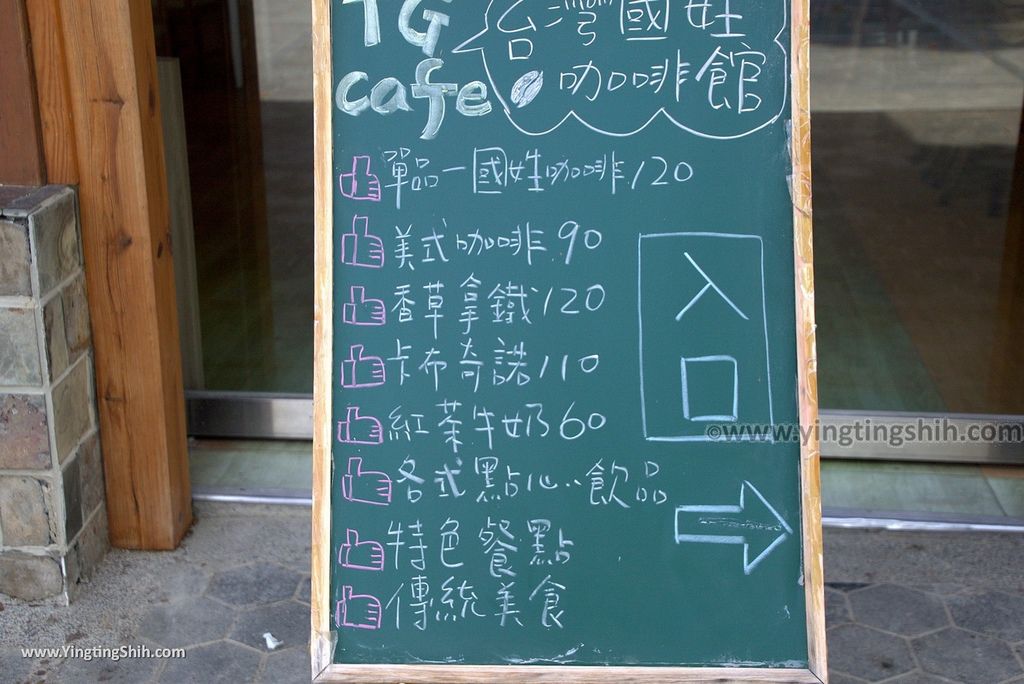 TG 台灣國姓
cafe 咖啡館
單品一國姓咖啡120
美式咖啡90
香草拿鐵120
卡布奇諾110
紅茶牛奶60
各式點心、飲品
特色餐點
傳統美食
入
口
©www.yingtingshih.com
www.YingTingShih.com